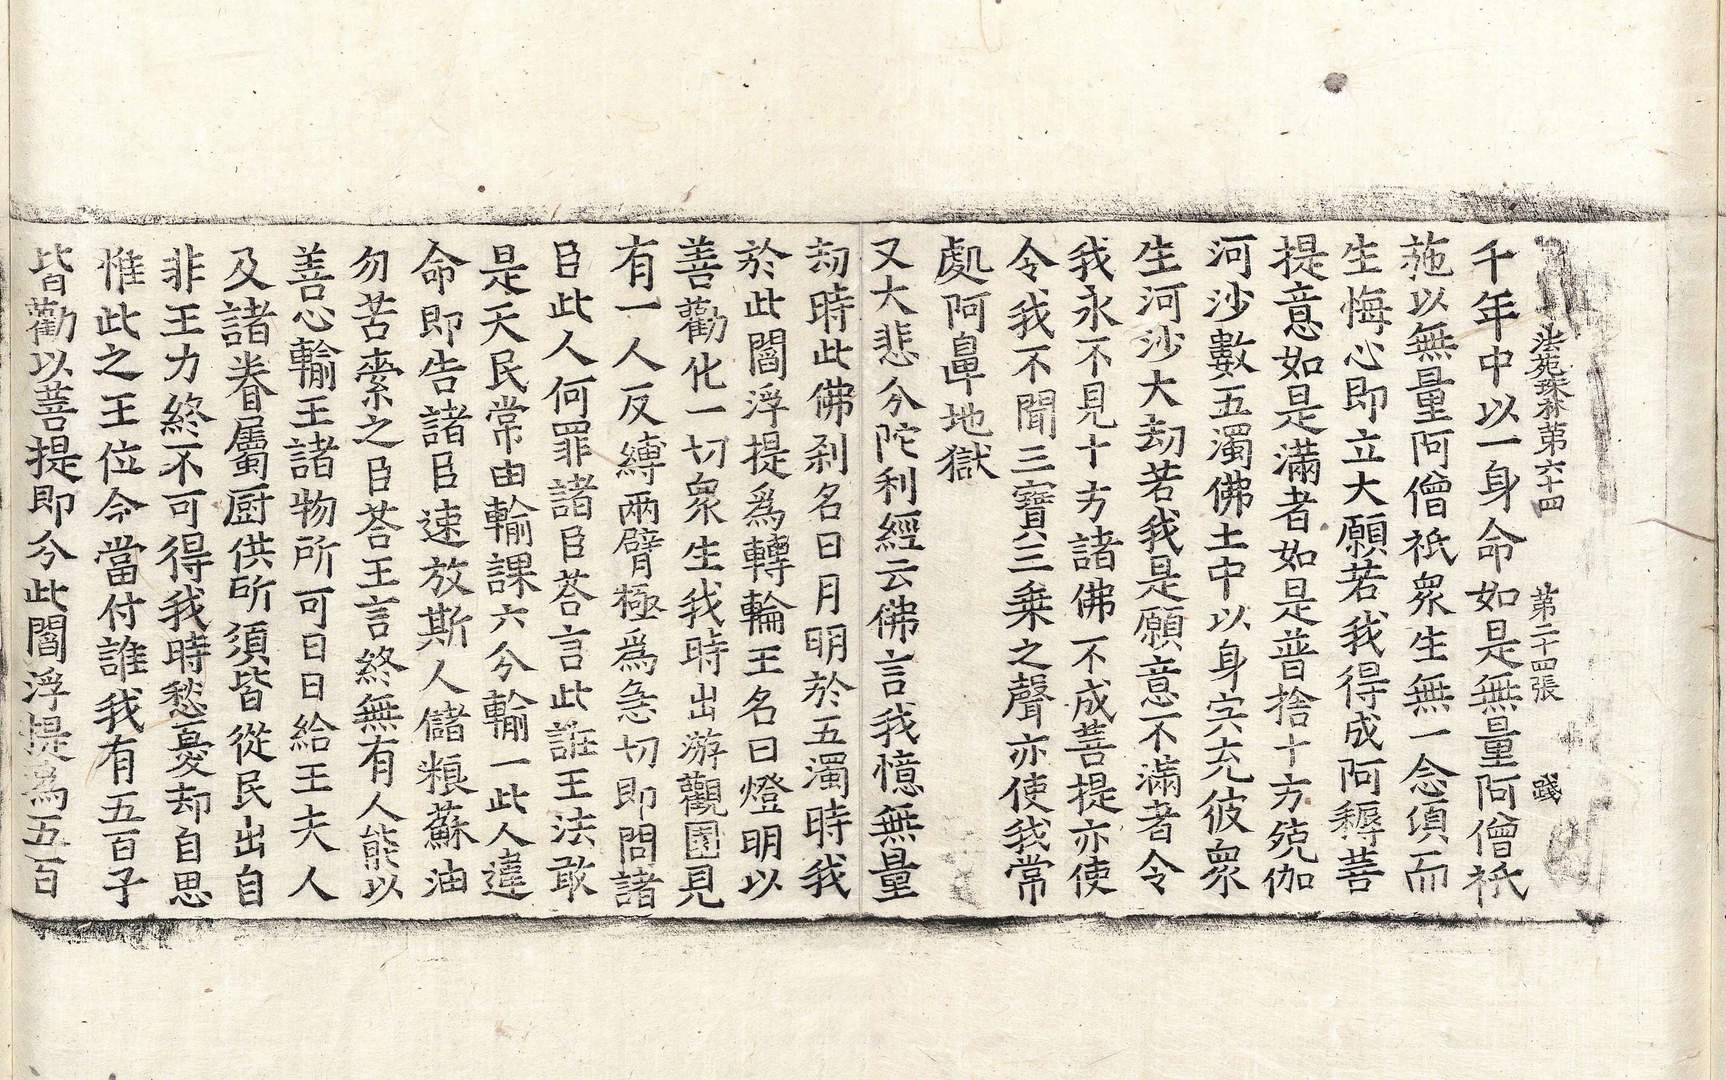 法苑珠林第六十四 第二十四張 踐
千年中以一身命如是無量阿僧祇
施以無量阿僧祇衆生無一念頃而
生悔心即立大願若我得成阿耨菩
提意如是滿者如是普捨十方殑伽
河沙數五濁佛土中以身宍充彼衆
生河沙大劫若我是願意不滿者令
我永不見十方諸佛不成菩提亦使
令我不聞三寶三乗之聲亦使我常
處阿鼻地獄
又大悲分陀利經云佛言我憶無量
劫時此佛刹名曰月明於五濁時我
於此閻浮提爲轉輪王名曰燈明以
善勸化一切衆生我時出游觀園見
有一人反縛兩臂極爲急切即問諸
臣此人何罪諸臣荅言此誑王法敢
是天民常由輸課六分輸一此人違
命即告諸臣速放斯人儲粮蘇油
勿苦索之臣荅王言終無有人能以
善心輸王諸物所可日日給王夫人
及諸眷屬厨供所須皆從民出自
非王力終不可得我時愁憂却自思
惟此之王位今當付誰我有五百子
皆勸以菩提即分此閻浮提爲五百